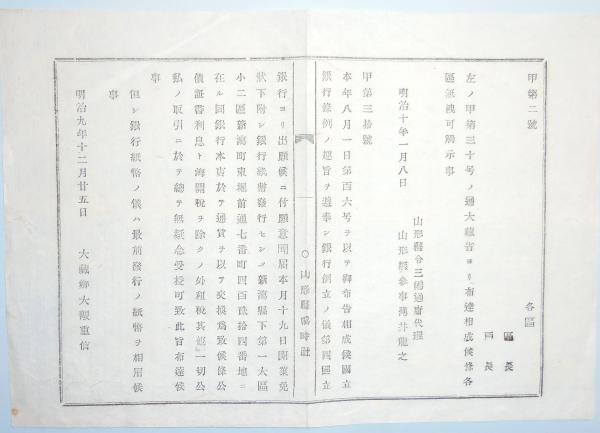 甲第二號
各區
區長
戸長
左ノ甲第三十号ノ通大藏省ヨリ布達相成候條各
區無洩可觸示事
明治十年一月八日
山形縣令三島通庸代理
山形縣參事薄井龍之
甲第三拾號
本年八月一日第百六号ヲ以テ御布告相成候國立
銀行條例ノ趣旨ヲ遵奉シ銀行創立ノ儀第四國立
○山形縣活版社
銀行ヨリ出願候ニ付願意聞届本月十九日開業免
狀下附シ銀行紙幣發行セシメ新潟縣下第一大區
小二區新潟町東堀前通七番町四百貳拾四番地ニ
在ル同銀行本店於テ通貨ヲ以テ交換爲致候條公
債証書利息ト海關税ヲ除クノ外租税其他一切公
私ノ取引ニ於テ總テ無疑念受授可致此旨布達候
事
但シ銀行紙幣ノ儀ハ最前發行ノ紙幣ヲ相用候
事
明治九年十二月廿五日
大藏卿大隈重信